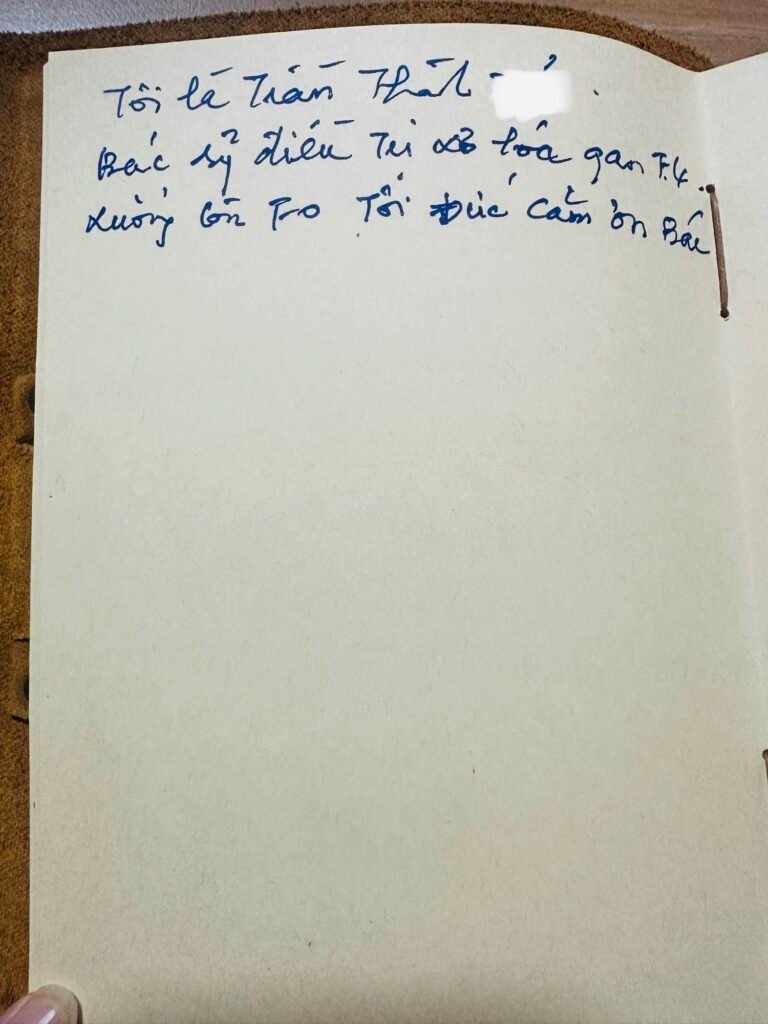 Tôi là Trần Thất
Bác sỹ điều Trị xơ hóa gan F4.
Xuống còn F0 Tôi Đức Cảm ơn Bác